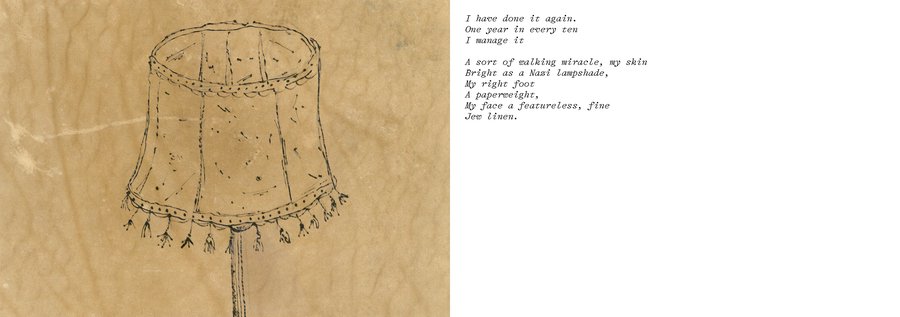 I have done it again.
One year in every ten
I manage it
A sort of walking miracle, my skin
Bright as a Nazi lampshade,
My right foot
A paperweight,
My face a featureless, fine
Jew linen.